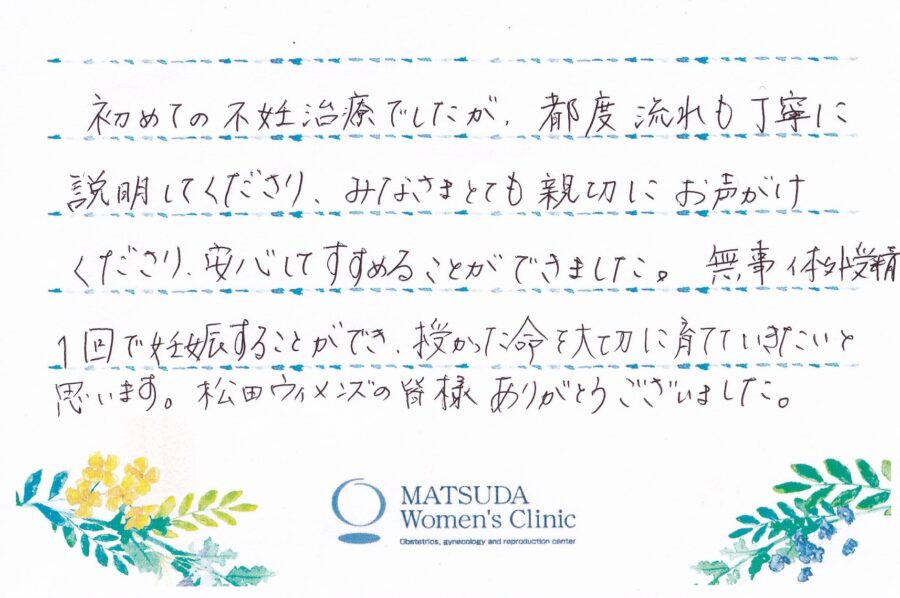 初めての不妊治療でしたが、都度流れも丁寧に
説明してくださり、みなさまとても親切にお声がけ
くださり、安心してすすめることができました。無事体外受精
1回で妊娠することができ、授かった命を大切に育てていきたいと
思います。松田ウィメンズの皆様ありがとうございました。
MATSUDA
Women's Clinic
Obstetrics, gynecology and reproduction center